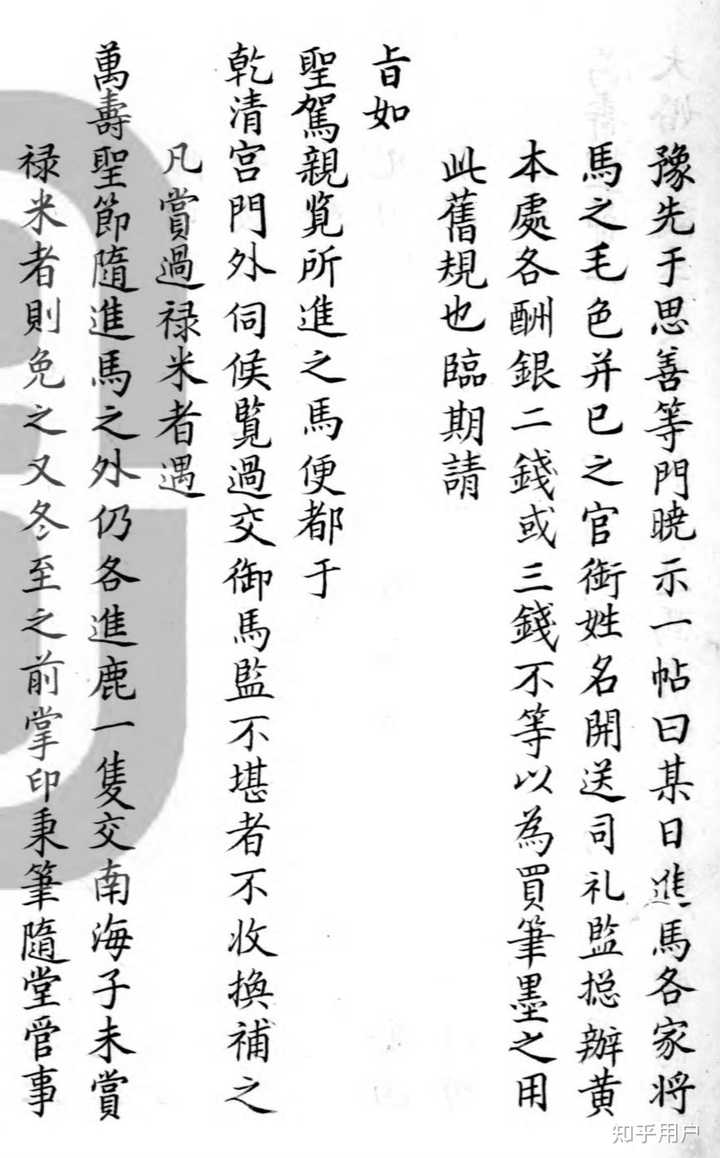 豫先于思善等門曉示一帖曰某日進馬各家將
馬之毛色并已之官銜姓名開送司礼監揔辦黄
本處各酬銀二錢或三錢不等以為買筆墨之用
此舊規也臨期請
旨如
聖駕親覧所進之馬便都于
乾清宮門外伺候覧過交御馬監不堪者不收換補之
凡賞過禄米者遇
萬壽聖節隨進馬之外仍各進鹿一隻交南海子未賞
禄米者則免之又冬至之前掌印秉筆隨堂管事
知乎用户